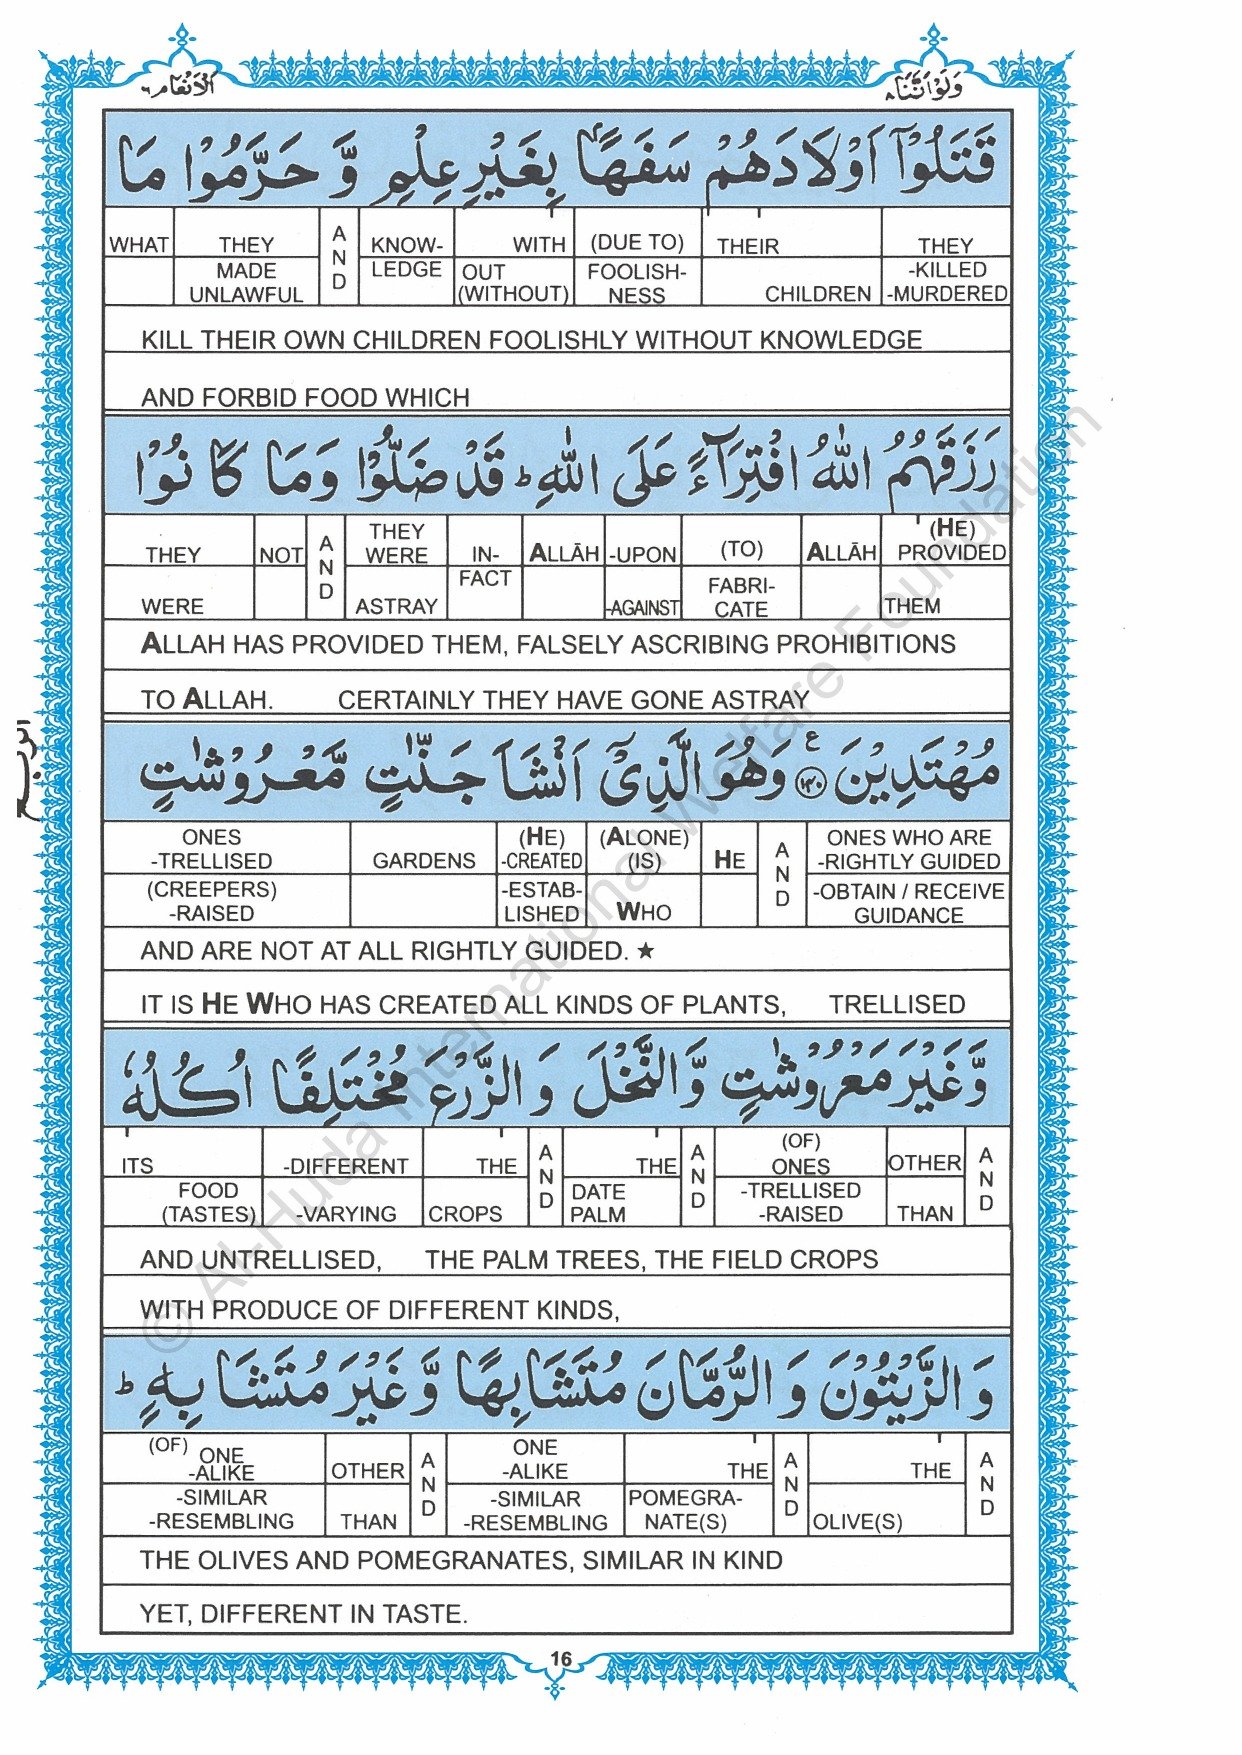 الانعام ٦
ولواننا ٨
قَتَلُوْۤا اَوْلَادَهُمْ سَفَهًۢا بِغَيْرِ عِلْمٍ وَّ حَرَّمُوْا مَا
WHAT THEY AND KNOW- WITH (DUE TO) THEIR THEY
MADE UNLAWFUL LEDGE OUT (WITHOUT) FOOLISH-NESS CHILDREN -KILLED -MURDERED
KILL THEIR OWN CHILDREN FOOLISHLY WITHOUT KNOWLEDGE
AND FORBID FOOD WHICH
رَزَقَهُمُ اللّٰهُ افْتِرَآءً عَلَى اللّٰهِ ؕ قَدْ ضَلُّوْا وَمَا كَانُوْا
THEY NOT AND THEY WERE IN- ALLĀH -UPON (TO) ALLĀH (HE) PROVIDED
WERE ASTRAY FACT -AGAINST FABRI-CATE THEM
ALLAH HAS PROVIDED THEM, FALSELY ASCRIBING PROHIBITIONS
TO ALLAH. CERTAINLY THEY HAVE GONE ASTRAY
مُهْتَدِيْنَ ﴿١٤٠﴾ ع وَهُوَ الَّذِيْۤ اَنْشَاَ جَنّٰتٍ مَّعْرُوْشٰتٍ
ONES -TRELLISED GARDENS (HE) -CREATED (ALONE) (IS) HE AND ONES WHO ARE -RIGHTLY GUIDED
(CREEPERS) -RAISED -ESTAB-LISHED WHO -OBTAIN / RECEIVE GUIDANCE
AND ARE NOT AT ALL RIGHTLY GUIDED. ★
IT IS HE WHO HAS CREATED ALL KINDS OF PLANTS, TRELLISED
وَّغَيْرَ مَعْرُوْشٰتٍ وَّالنَّخْلَ وَ الزَّرْعَ مُخْتَلِفًا اُكُلُهٗ
ITS -DIFFERENT THE AND THE AND (OF) ONES OTHER AND
FOOD (TASTES) -VARYING CROPS DATE PALM -TRELLISED -RAISED THAN
AND UNTRELLISED, THE PALM TREES, THE FIELD CROPS
WITH PRODUCE OF DIFFERENT KINDS,
وَ الزَّيْتُوْنَ وَ الرُّمَّانَ مُتَشَابِهًا وَّ غَيْرَ مُتَشَابِهٍ ؕ
(OF) ONE -ALIKE OTHER AND ONE -ALIKE THE AND THE AND
-SIMILAR -RESEMBLING THAN -SIMILAR -RESEMBLING POMEGRA-NATE(S) OLIVE(S)
THE OLIVES AND POMEGRANATES, SIMILAR IN KIND
YET, DIFFERENT IN TASTE.
16
© Al-Huda International Welfare Foundation